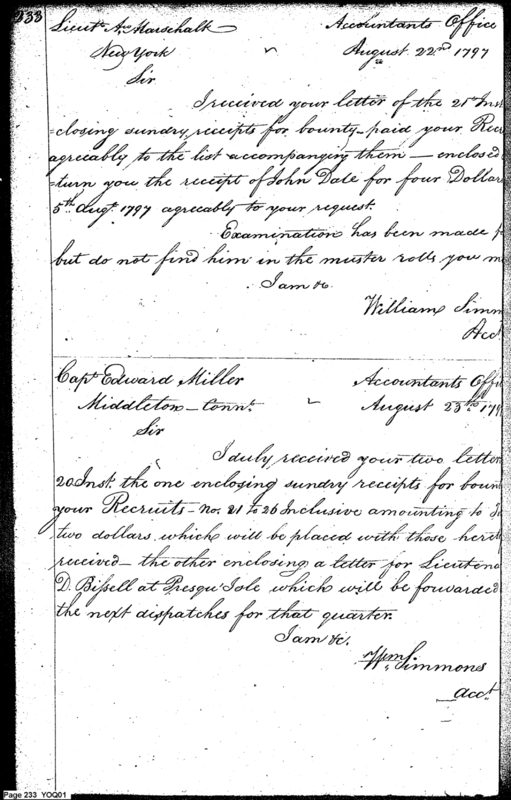 233
Lieut. Aw. Marschalk Accountants Office
New York August 22nd 1797
Sir
I received your letter of the 21st Inst
closing sundry receipts for bounty paid your Rec
agreeably to the list accompanying them — enclosed
turn you the receipt of John Dale for four Dollars
5th Augt. 1797 agreeably to your request.
Examination has been made f
but do not find him in the muster rolls you m
I am &c.
William Simm
Acct.
Capt. Edward Miller Accountants Offi
Middleton — Connt. August 23rd 179
Sir
I duly received your two letter
20 Inst. the one enclosing sundry receipts for boun
your Recruits — No. 21 to 26 Inclusive amounting to
two dollars which will be placed with those here
received — the other enclosing a letter for Lieutena
D. Bissell at Presqu'Isle which will be forwarded
the next dispatches for that quarter.
I am &c.
Wm. Simmons
Acct.
Page 233 YOQ01